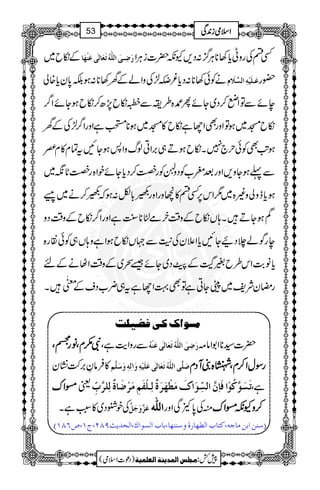 53 اسلامی زندگی
کسی قسم کی روٹی یا کھانا ہرگز نہ دیں کیونکہ حضرت زہرا رَضِیَ اللہُ تَعَالٰی عَنْہَا کے نکاح میں
حضور عَلَیْہِ السَّلَام نے کوئی کھانا نہ دیا غرضکہ لڑکی والے کے گھر کھانا نہ ہو بلکہ پان یا خالی
چائے سے تواضع کردی جائے پھر عمدہ طریقہ سے خطبۂ نکاح پڑھ کر نکاح ہوجائے اگر
نکاح مسجد میں ہو تو اور بھی اچھا ہے نکاح کا مسجد میں ہونا مستحب ہے اور اگر لڑکی کے گھر
ہو تب بھی کوئی حرج نہیں۔ نکاح ہوتے ہی باراتی لوگ واپس ہوجائیں یہ تمام کام عصر
سے پہلے ہوجاویں اور بعد مغرب کو دلہن کو رخصت کردیا جائے خواہ رخصت ٹانگہ میں
ہو یا ڈولی وغیرہ میں مگر اس پر کسی قسم کا نچھاور اور بکھیر بالکل نہ ہو کہ بکھیر کرنے میں پیسے
گم ہوجاتے ہیں۔ ہاں نکاح کے وقت خرمے لٹانا سنت ہے اور اگر نکاح کے وقت دو
چار گولے چلا دیئے جائیں یا اعلان کی نیت سے جہاں نکاح ہوا ہے وہاں ہی کوئی نقارہ
یا نوبت اس طرح بغیر گیت کے پیٹ دی جائے جیسے سحری کے وقت اٹھانے کے لئے
رمضان شریف میں پیٹی جاتی ہے تو بھی بہت اچھا ہے یہی ضرب دف کے معنٰی ہیں۔
مسواک کی فضیلت
حضرت سیدنا ابوامامہ رَضِیَ اللہُ تَعَالٰی عَنْہُ سے روایت ہے، نبی مکرم، نور مجسم،
رسول اکرم، شہنشاہ بنی آدم صَلَّی اللہُ تَعَالٰی عَلَیْہِ وَاٰلِہٖ وَسَلَّم کا فرمان برکت نشان
ہے، تَسَوَّكُوْا فَاِنَّ السِّوَاكَ مَطْهَرَةٌ لِّلْفَمِ مَرْضَاةٌ لِّلرَّبِّ یعنی مسواک
کرو کیونکہ مسواک منہ کی پاکیزگی اور اللہ عَزَّوَجَلَّ کی خوشنودی کا سبب ہے۔
(سنن ابن ماجه،کتاب الطهارة وسننها،باب السواك،الحدیث۲۸۹،ج۱،ص۱۸۶)
پیش کش: مجلس المدینة العلمیة (دعوت اسلامی)